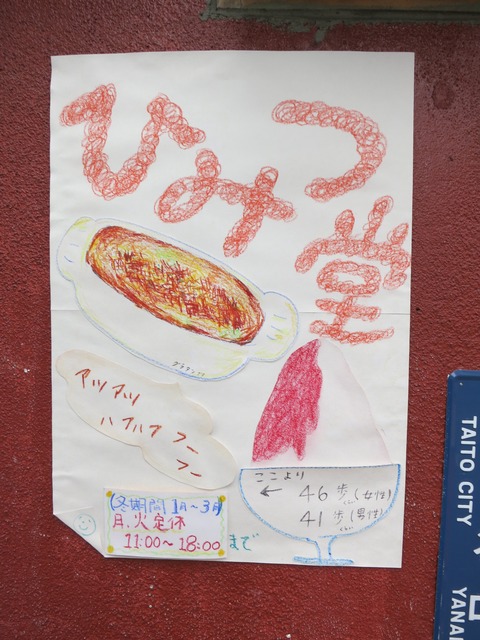 ひみつ堂
グラタン!!
アツアツ
ハフハフ フー
フー
ここより
← 46 歩(女性)
41 歩(男性)
(冬期間) 1月~3月
月、火定休
11:00~18:00まで
TAITO CITY
YANA